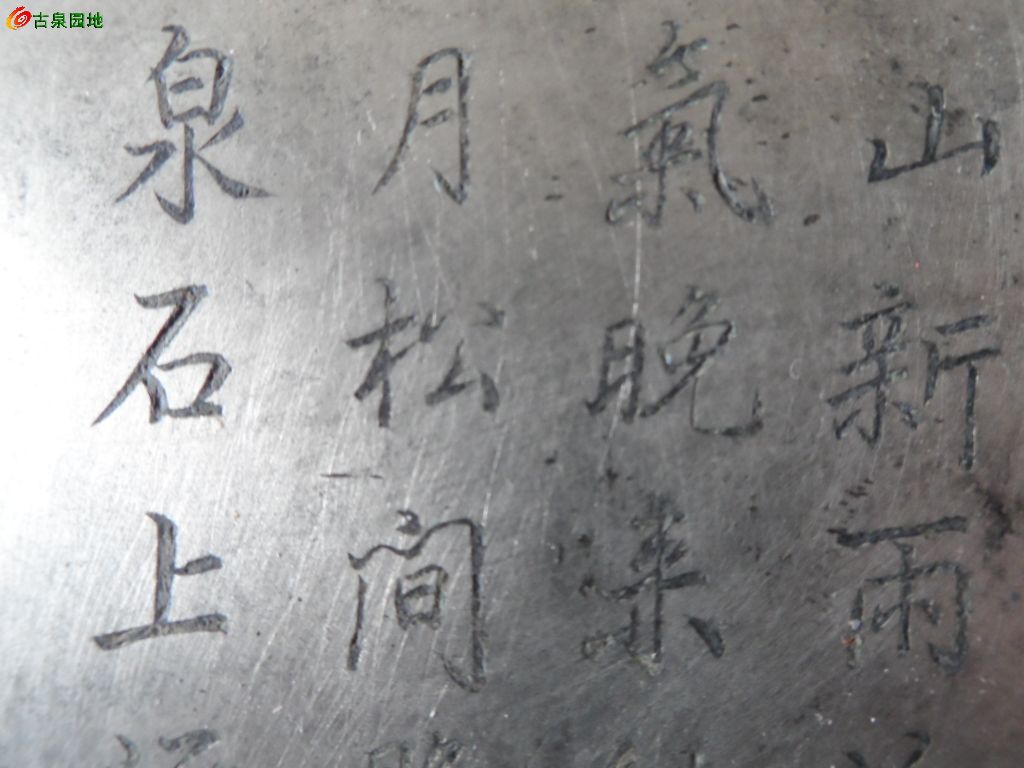 古泉园地
山新雨
氣晚来
月松間
泉石上